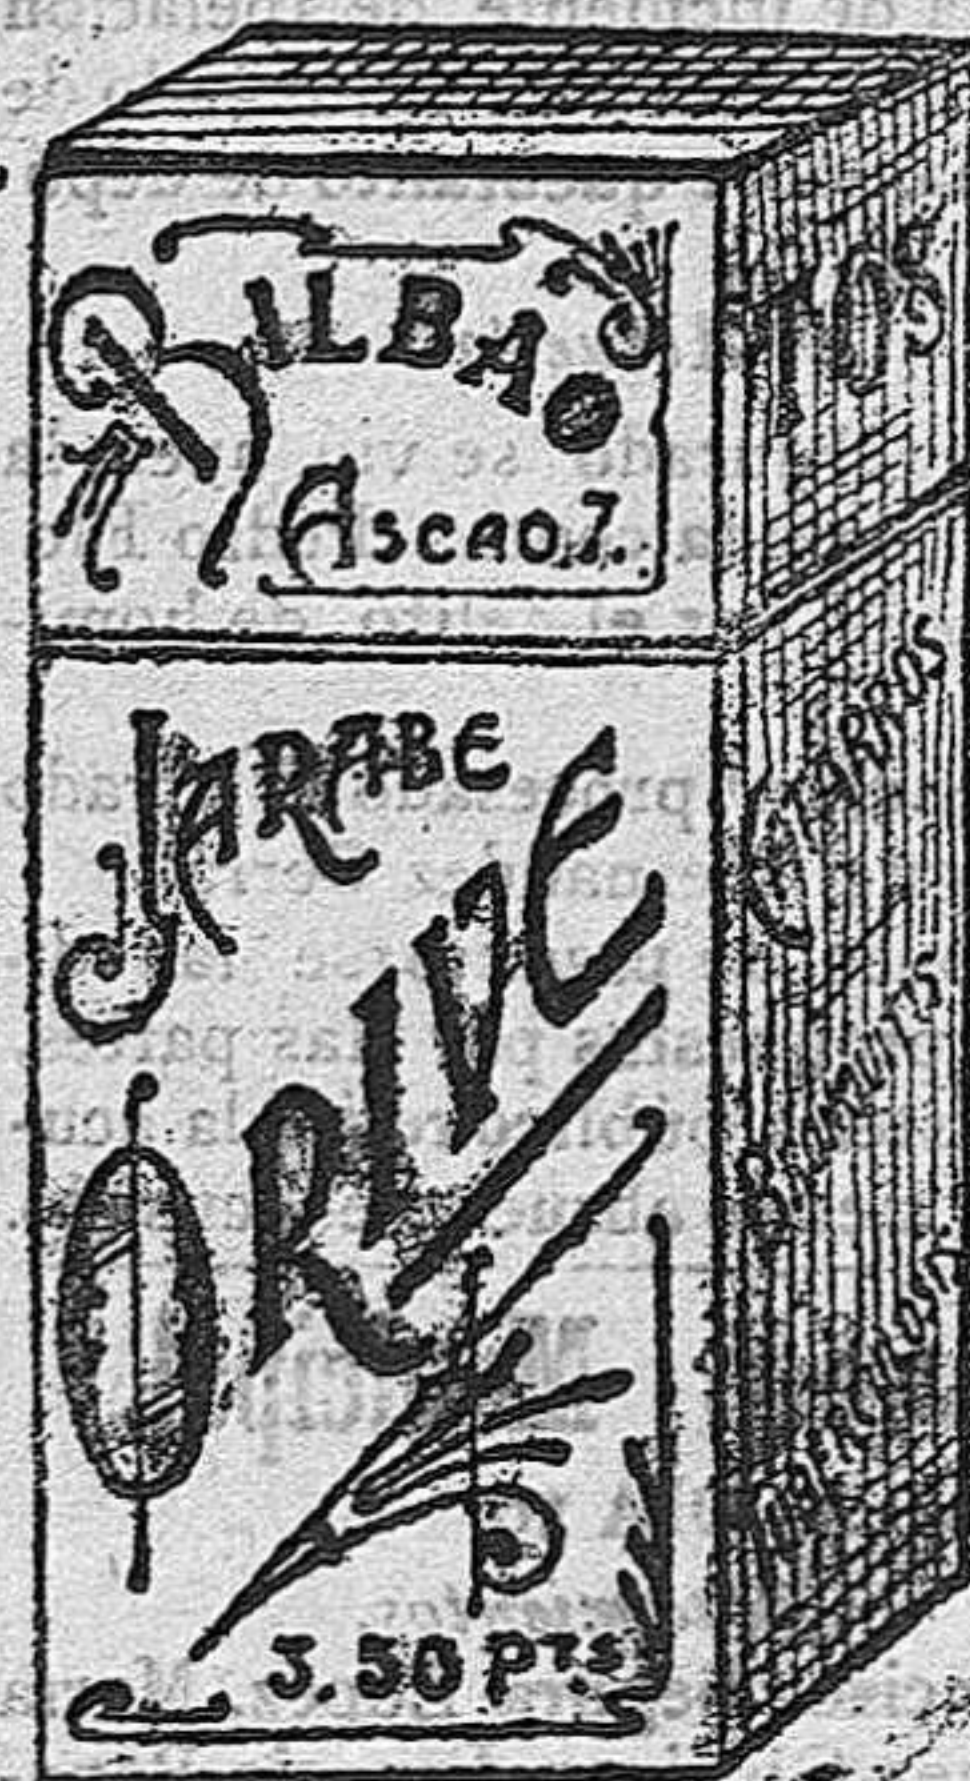 BILBAO
ASCAO.7.
JARABE
ORIVE
3.50 PTS
TOS
CATARROS
BRONQUITIS
TUBERCULOSIS